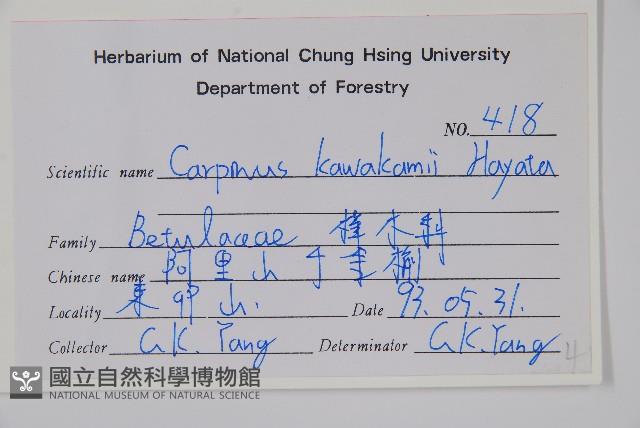 Herbarium of National Chung Hsing University
Department of Forestry
NO. 418
Scientific name Carpinus kawakamii Hayata
Family Betulaceae 樺木科
Chinese name 阿里山千金榆
Locality 東卯山.
Date 93.05.31.
Collector G.K. Yang
Determinator G.K. Yang
4
國立自然科學博物館
NATIONAL MUSEUM OF NATURAL SCIENCE